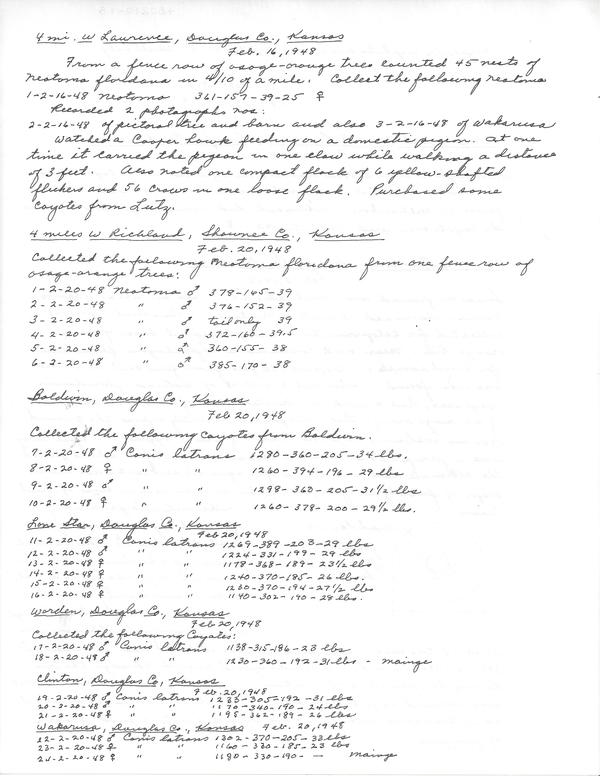 4 mi. W Lawrence, Douglas Co., Kansas
Feb. 16, 1948
From a fence row of osage-orange trees counted 45 nests of
Neotoma floridana in 4/10 of a mile. Collect the following neotoma
1-2-16-48 Neotoma 361-157-39-25 ♀
Recorded 2 photographs nos:
2-2-16-48 of pictoral tree and barn and also 3-2-16-48 of Wakarusa
Watched a Cooper hawk feeding on a domestic pigeon. At one
time it carried the pigeon in one claw while walking a distance
of 3 feet. Also noted one compact flock of 6 yellow-shafted
flickers and 56 crows in one loose flock. Purchased some
coyotes from Lutz.
4 miles W Richland, Shawnee Co., Kansas
Feb. 20, 1948
Collected the following Neotoma floridana from one fence row of
osage-orange trees:
1-2-20-48 Neotoma ♂ 378-165-39
2-2-20-48 " ♂ 376-152-39
3-2-20-48 " ♂ tail only 39
4-2-20-48 " ♂ 372-160-39.5
5-2-20-48 " ♂ 360-155-38
6-2-20-48 " ♂ 385-170-38
Baldwin, Douglas Co., Kansas
Feb 20, 1948
Collected the following Coyotes from Baldwin.
7-2-20-48 ♂ Canis latrans 1280-360-205-34 lbs.
8-2-20-48 ♀ " " 1260-394-196-29 lbs
9-2-20-48 ♂ " " 1298-360-205-31½ lbs
10-2-20-48 ♀ " " 1260-378-200-29½ lbs.
Lone Star, Douglas Co., Kansas
Feb 20, 1948
11-2-20-48 ♂ Canis latrans 1269-389-203-29 lbs
12-2-20-48 ♂ " " 1224-331-199-29 lbs
13-2-20-48 ♀ " " 1178-368-189-23½ lbs
14-2-20-48 ♀ " " 1240-370-185-26 lbs.
15-2-20-48 ♀ " " 1230-370-194-27½ lbs
16-2-20-48 ♀ " " 1140-302-190-28 lbs.
Worden, Douglas Co., Kansas
Feb 20, 1948
Collected the following Coyotes:
17-2-20-48 ♂ Canis latrans 1138-315-186-23 lbs
18-2-20-48 ♂ " " 1230-360-192-31 lbs - mainge
Clinton, Douglas Co., Kansas
Feb. 20, 1948
19-2-20-48 ♂ Canis latrans 1233-305-192-31 lbs
20-2-20-48 ♂ " " 1170-340-190-24 lbs
21-2-20-48 ♀ " " 1195-362-189-26 lbs
Wakarusa, Douglas Co., Kansas Feb. 20, 1948
22-2-20-48 ♂ Canis latrans 1302-370-205-33 lbs
23-2-20-48 ♀ " " 1160-330-185-23 lbs
24-2-20-48 " " 1180-330-190- — mainge